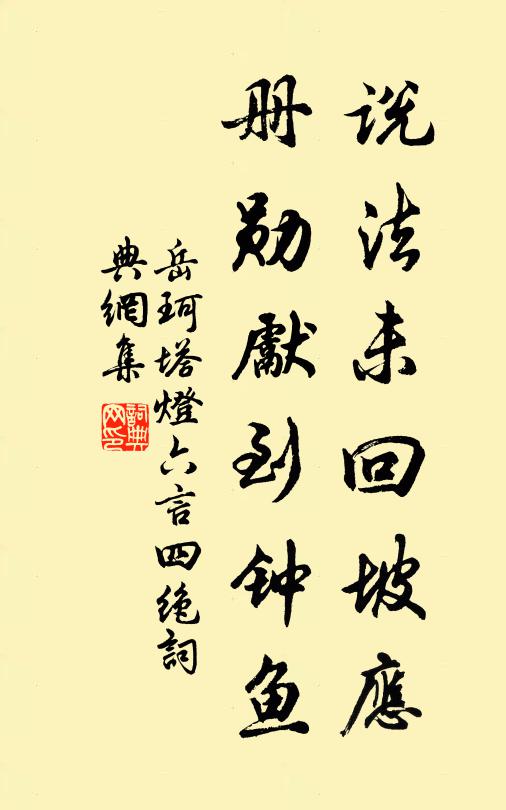 说法未回坡應
册勋獻到钟鱼
岳珂塔燈六言四绝詞
典網集
詞典网印